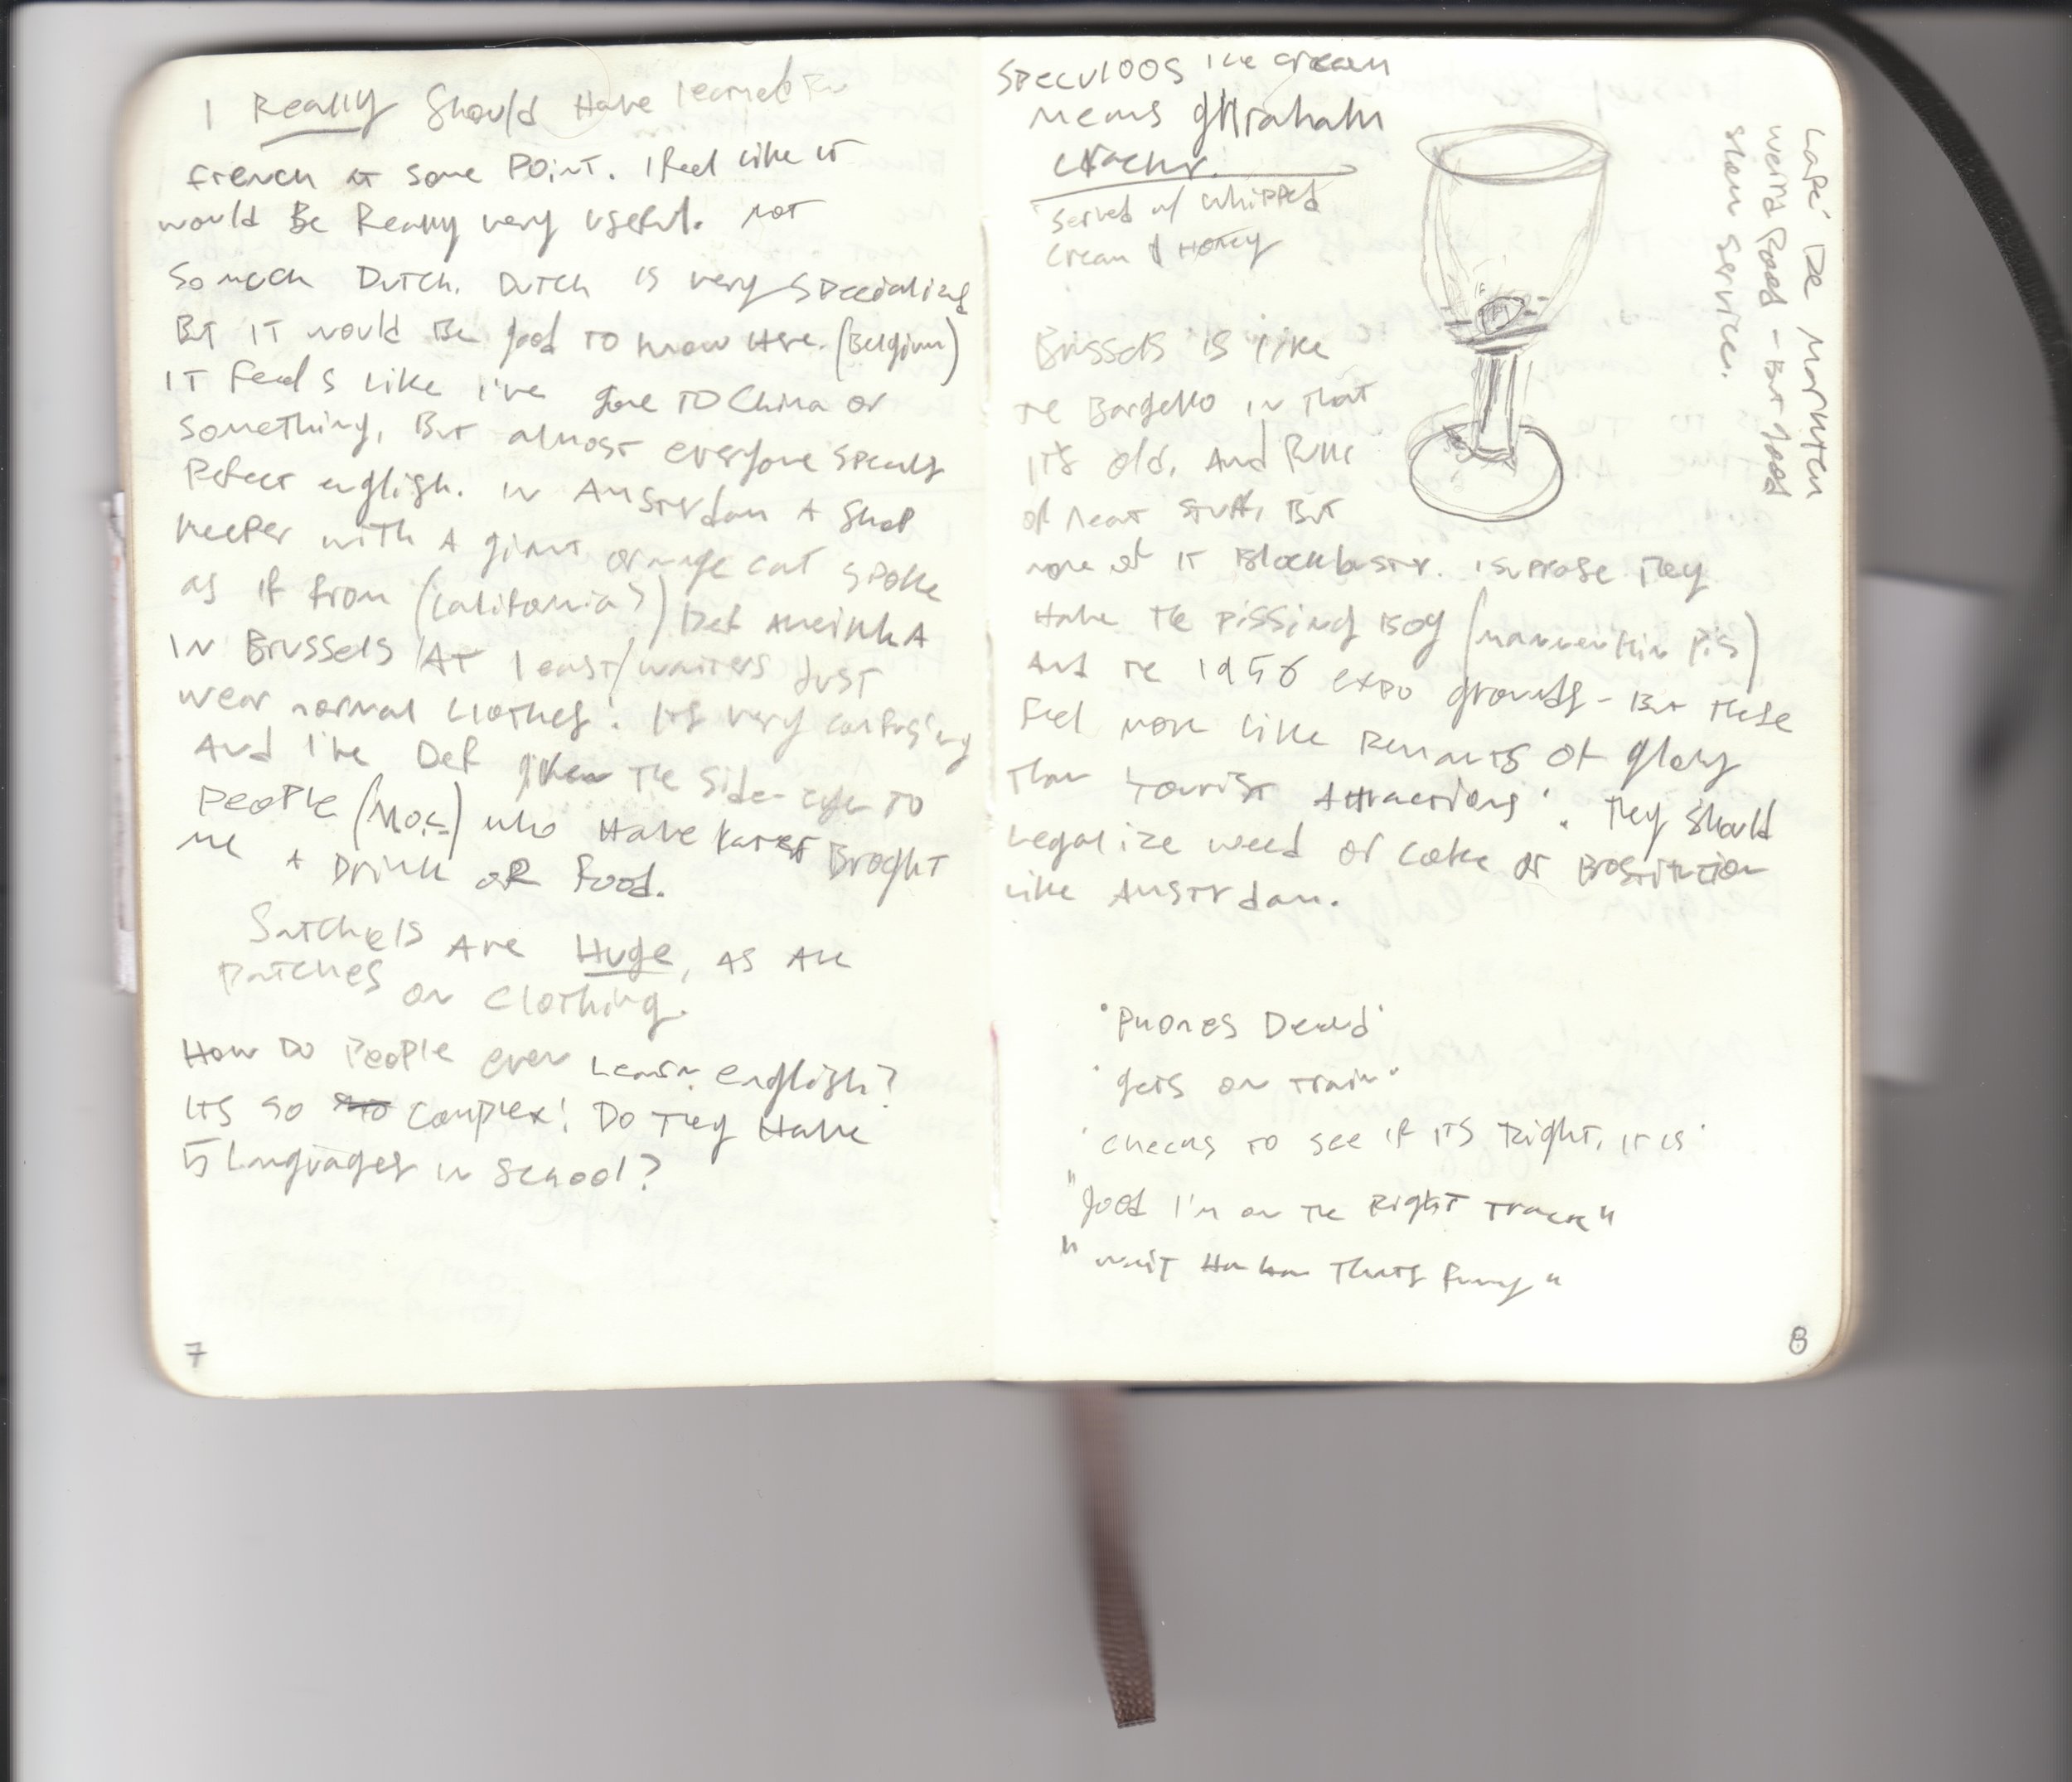 I Really Should Have learned
french at some Point. I feel like it
would Be Really very useful. not
so much Dutch. Dutch is very specialized
But IT would Be good to know Here. (Belgium)
IT feels like i've gone TO China or
something, But almost everyone speaks
Pefect english. in Amsterdam A shop
keeper with A giant orange cat spoke
as if from (California?) Def
In Brussels At least waiters Just
wear normal clothes! Its very confusing
And I've Def given the side-eye to
people who Have Broght
me A Drink oR food.
Satchels Are Huge, as are
patches on clothing.
How Do People ever Learn english?
Its so complex! Do They Have
5 languages in school?
7
Speculoos ice cream
means ghraham
cracker.
served w/ whipped
cream & Honey
Café De Markten
weird food - But good
slow service.
Brussels is like
The Bargello in That
it's old, And full
of neat stuff, But
none of it Blockbuster. i suppose They
Have The Pissing Boy (mannenkin Pis)
And The 1958 expo grounds - But These
feel more like Remants of glory
Than tourist Attractions. They should
Legalize weed or coke or Prostitution
like Amsterdam.
'Phones Dead'
'gets on train'
'checks to see if its Right, it is'
"good I'm on the Right Track"
"wait Ha ha Thats funny"
8